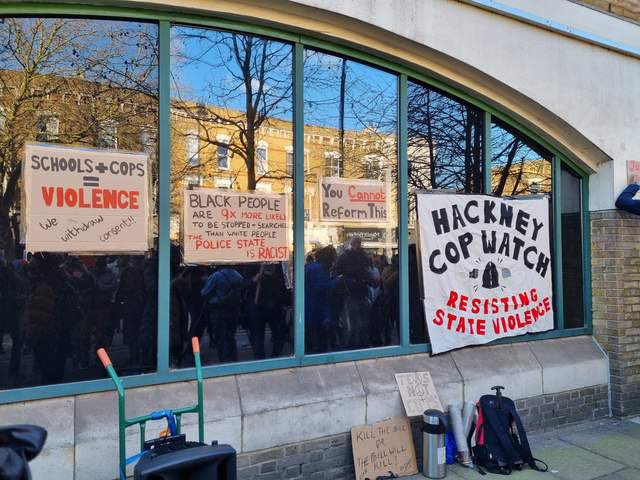 SCHOOLS+COPS
=
VIOLENCE
We
withdraw
consent!!
BLACK PEOPLE
ARE 9X MORE LIKELY
TO BE STOPPED+SEARCHED
THAN WHITE PEOPLE
THE POLICE STATE
IS RACIST
You Cannot
Reform This
HACKNEY
COP WATCH
RESISTING
STATE VIOLENCE
KILL THE BILL
OR
THE BILL WILL
KILL!